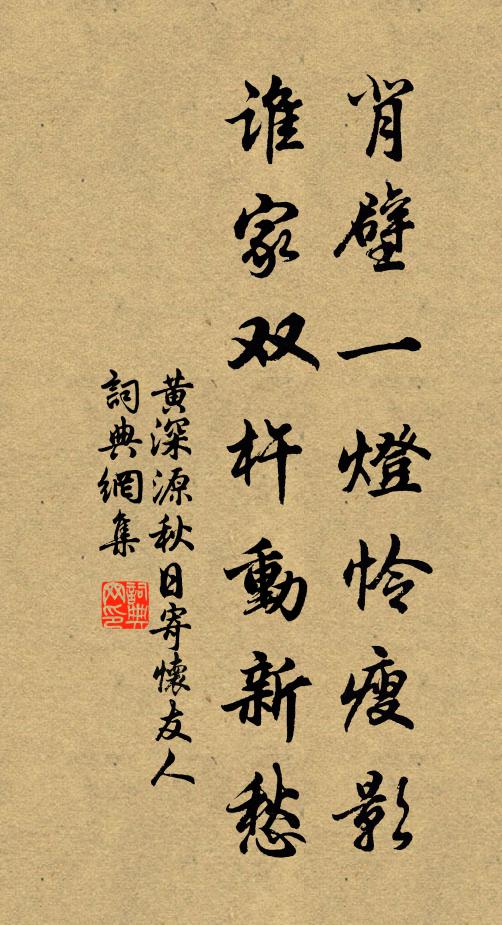 肖壁一燈怜瘦影
谁家双杵動新愁
黄深源秋日寄懷友人
詞典網集
詞典
网印